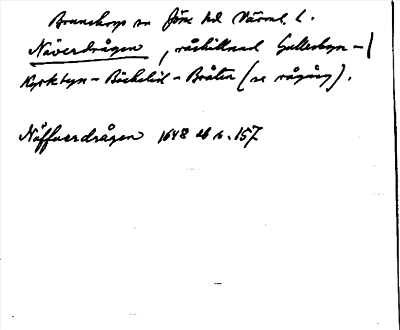 Brunskogs sn Jöse hd Värml. l.
Näverdrågen, råskillnad Gullerbyn -
Kyrkbyn - Bäckelid - Bråten (se rågång).
Näffuerdrågen 1648 s. 157